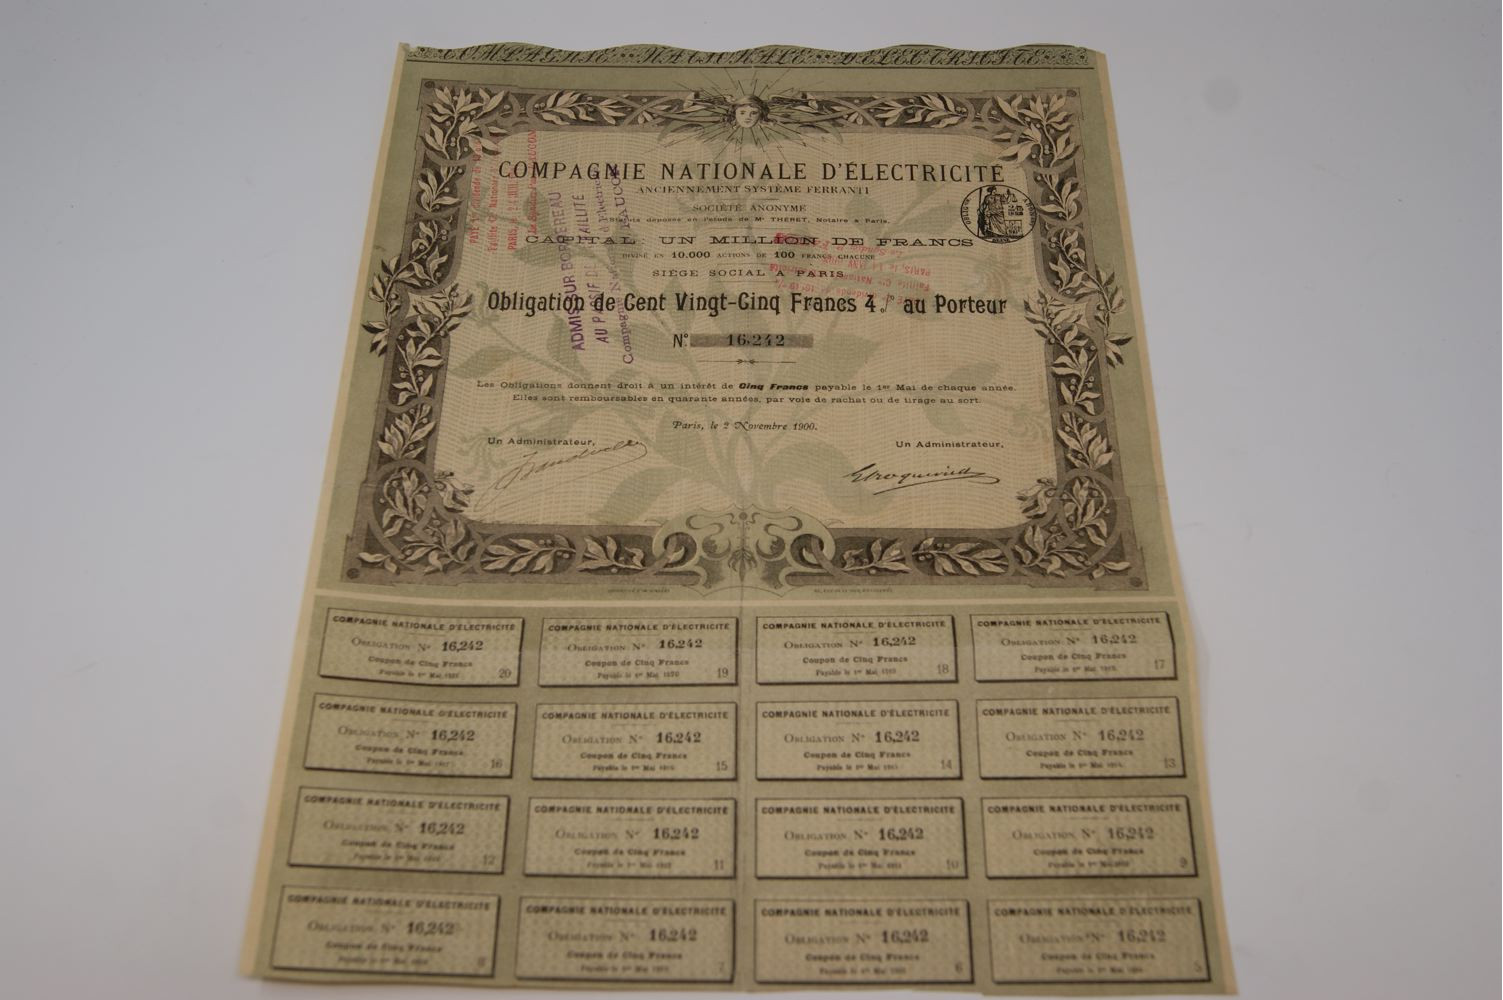 COMPAGNIE NATIONALE D'ELECTRICITE
COMPAGNIE NATIONALE D'ÉLECTRICITÉ
ANCIENNEMENT SYSTÈME FERRANTI
SOCIÉTÉ ANONYME
Statuts déposés en l'étude de Me THÉRET, Notaire à Paris.
CAPITAL: UN MILLION DE FRANCS
DIVISÉ EN 10.000 ACTIONS DE 100 FRANCS CHACUNE
SIÈGE SOCIAL A PARIS
Obligation de Cent Vingt-Cinq Francs 4% au Porteur
No 16.242
Les Obligations donnent droit à un intérêt de Cinq Francs payable le 1er Mai de chaque année.
Elles sont remboursables en quarante années, par voie de rachat ou de tirage au sort.
Paris, le 2 Novembre 1900.
Un Administrateur, Un Administrateur,
ADMIS SUR BORDEREAU
AU PASSIF DE FAILLITE
Compagnie
PARIS, le
COMPAGNIE NATIONALE D'ÉLECTRICITÉ
OBLIGATION No 16,242
Coupon de Cinq Francs
Payable le 1er Mai
20
COMPAGNIE NATIONALE D'ÉLECTRICITÉ
OBLIGATION No 16,242
Coupon de Cinq Francs
Payable le 1er Mai
19
COMPAGNIE NATIONALE D'ÉLECTRICITÉ
OBLIGATION No 16,242
Coupon de Cinq Francs
Payable le 1er Mai
18
COMPAGNIE NATIONALE D'ÉLECTRICITÉ
OBLIGATION No 16,242
Coupon de Cinq Francs
Payable le 1er Mai
17
COMPAGNIE NATIONALE D'ÉLECTRICITÉ
OBLIGATION No 16,242
Coupon de Cinq Francs
Payable le 1er Mai
16
COMPAGNIE NATIONALE D'ÉLECTRICITÉ
OBLIGATION No 16,242
Coupon de Cinq Francs
Payable le 1er Mai
15
COMPAGNIE NATIONALE D'ÉLECTRICITÉ
OBLIGATION No 16,242
Coupon de Cinq Francs
Payable le 1er Mai
14
COMPAGNIE NATIONALE D'ÉLECTRICITÉ
OBLIGATION No 16,242
Coupon de Cinq Francs
Payable le 1er Mai
13
COMPAGNIE NATIONALE D'ÉLECTRICITÉ
OBLIGATION No 16,242
Coupon de Cinq Francs
Payable le 1er Mai
12
COMPAGNIE NATIONALE D'ÉLECTRICITÉ
OBLIGATION No 16,242
Coupon de Cinq Francs
Payable le 1er Mai
11
COMPAGNIE NATIONALE D'ÉLECTRICITÉ
OBLIGATION No 16,242
Coupon de Cinq Francs
Payable le 1er Mai
10
COMPAGNIE NATIONALE D'ÉLECTRICITÉ
OBLIGATION No 16,242
Coupon de Cinq Francs
Payable le 1er Mai
9
COMPAGNIE NATIONALE D'ÉLECTRICITÉ
OBLIGATION No 16,242
Coupon de Cinq Francs
Payable le 1er Mai
8
COMPAGNIE NATIONALE D'ÉLECTRICITÉ
OBLIGATION No 16,242
Coupon de Cinq Francs
Payable le 1er Mai
7
COMPAGNIE NATIONALE D'ÉLECTRICITÉ
OBLIGATION No 16,242
Coupon de Cinq Francs
Payable le 1er Mai
6
COMPAGNIE NATIONALE D'ÉLECTRICITÉ
OBLIGATION No 16,242
Coupon de Cinq Francs
Payable le 1er Mai
5